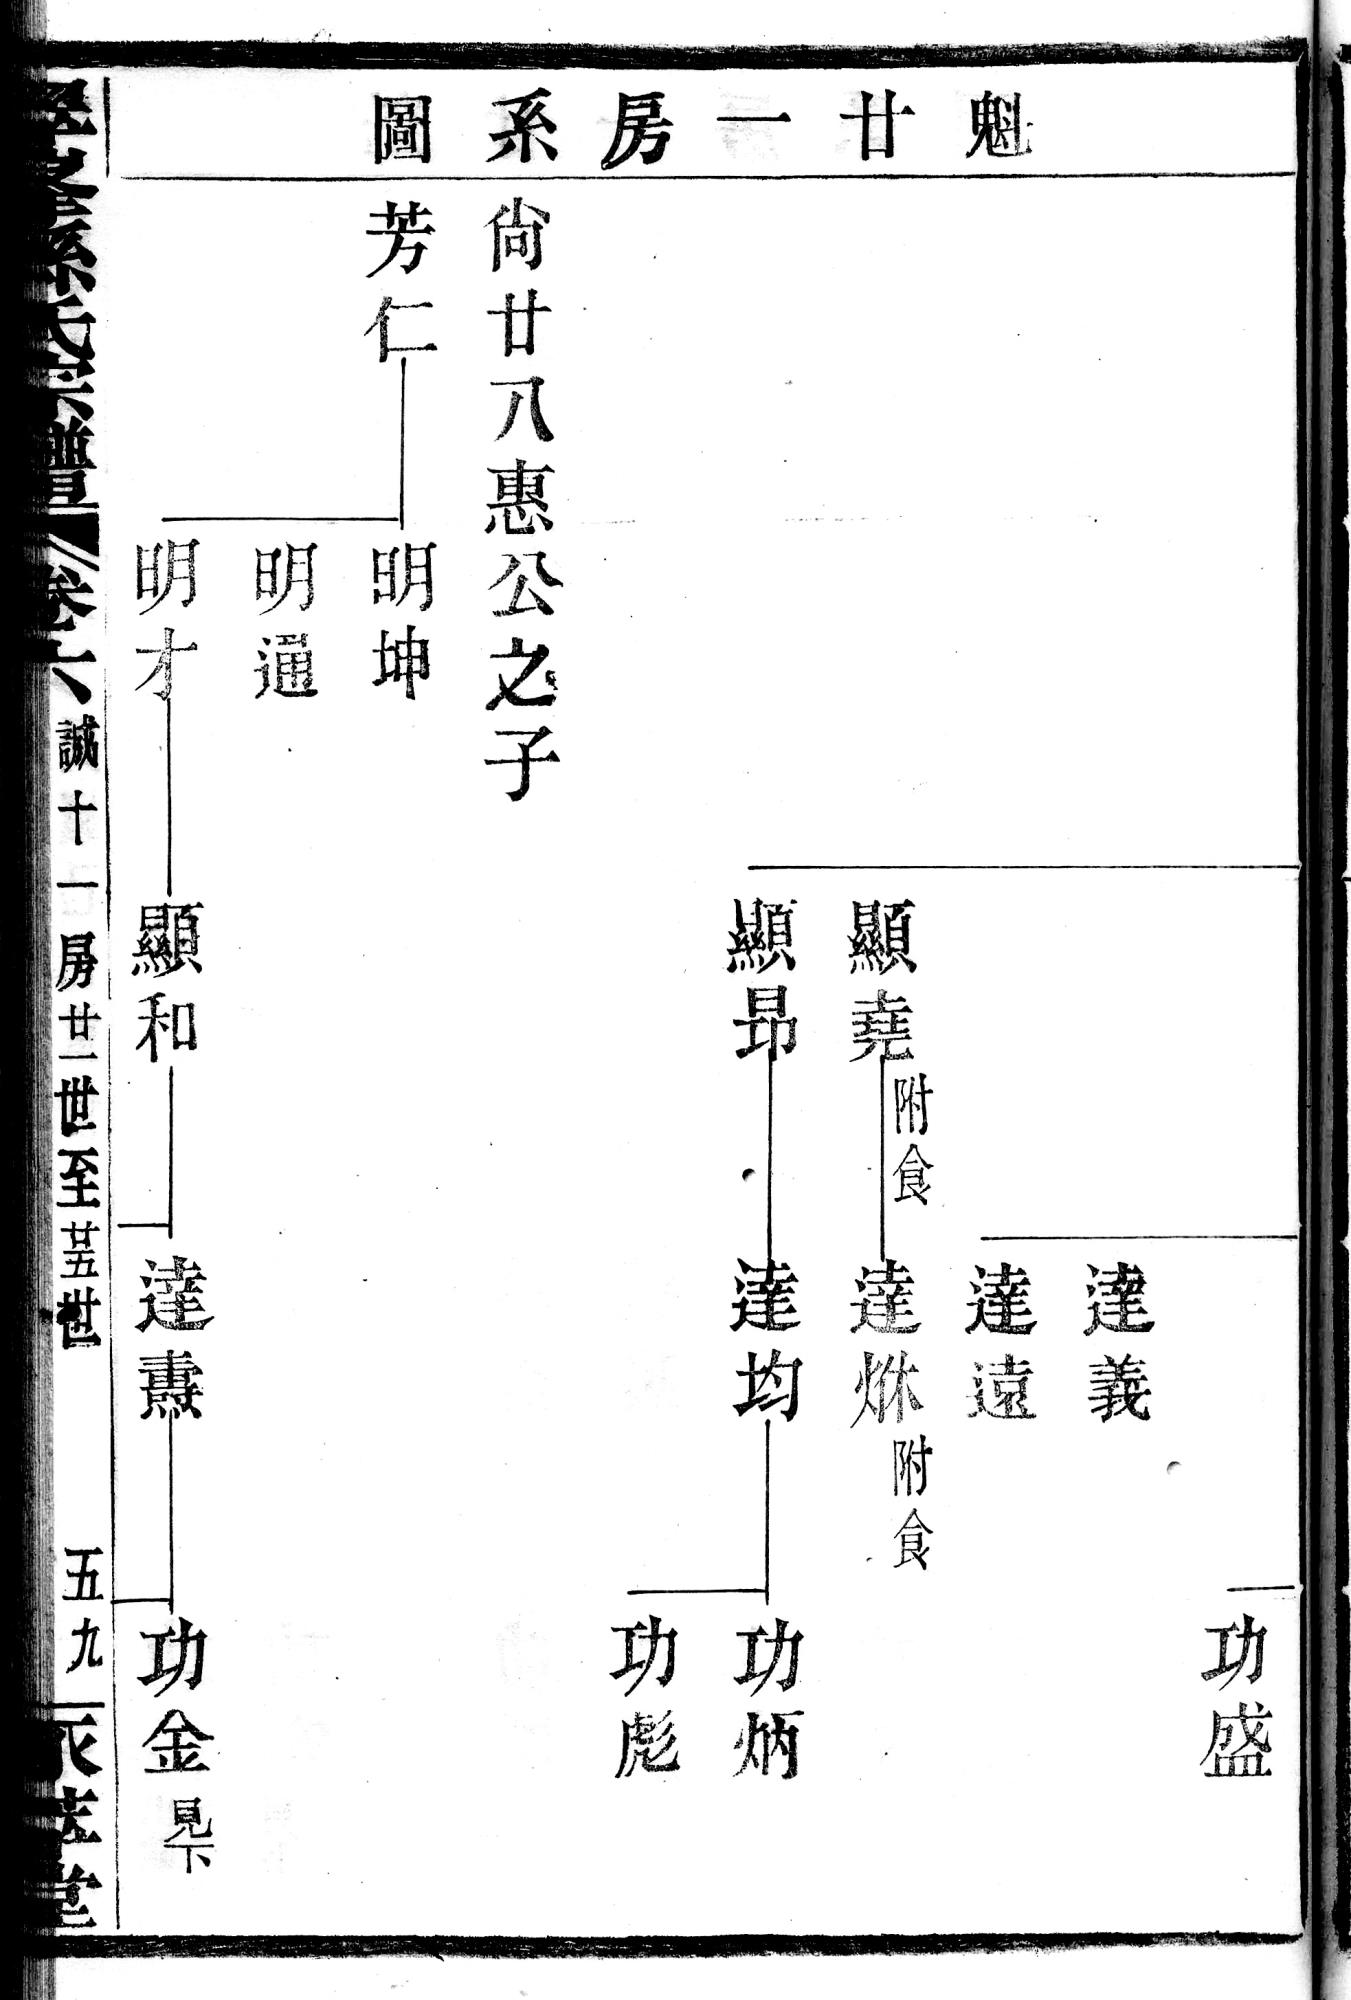 魁廿一房系圖
功盛
達義
達遠
顯堯 附食
達烌 附食
顯昂
達均
功炳
功彪
尙廿八惠公之子
芳仁
明坤
明通
明才
顯和
達燾
功金 見下
孫氏宗譜
卷六
誠十一房廿一世至廿五世
五九
堂